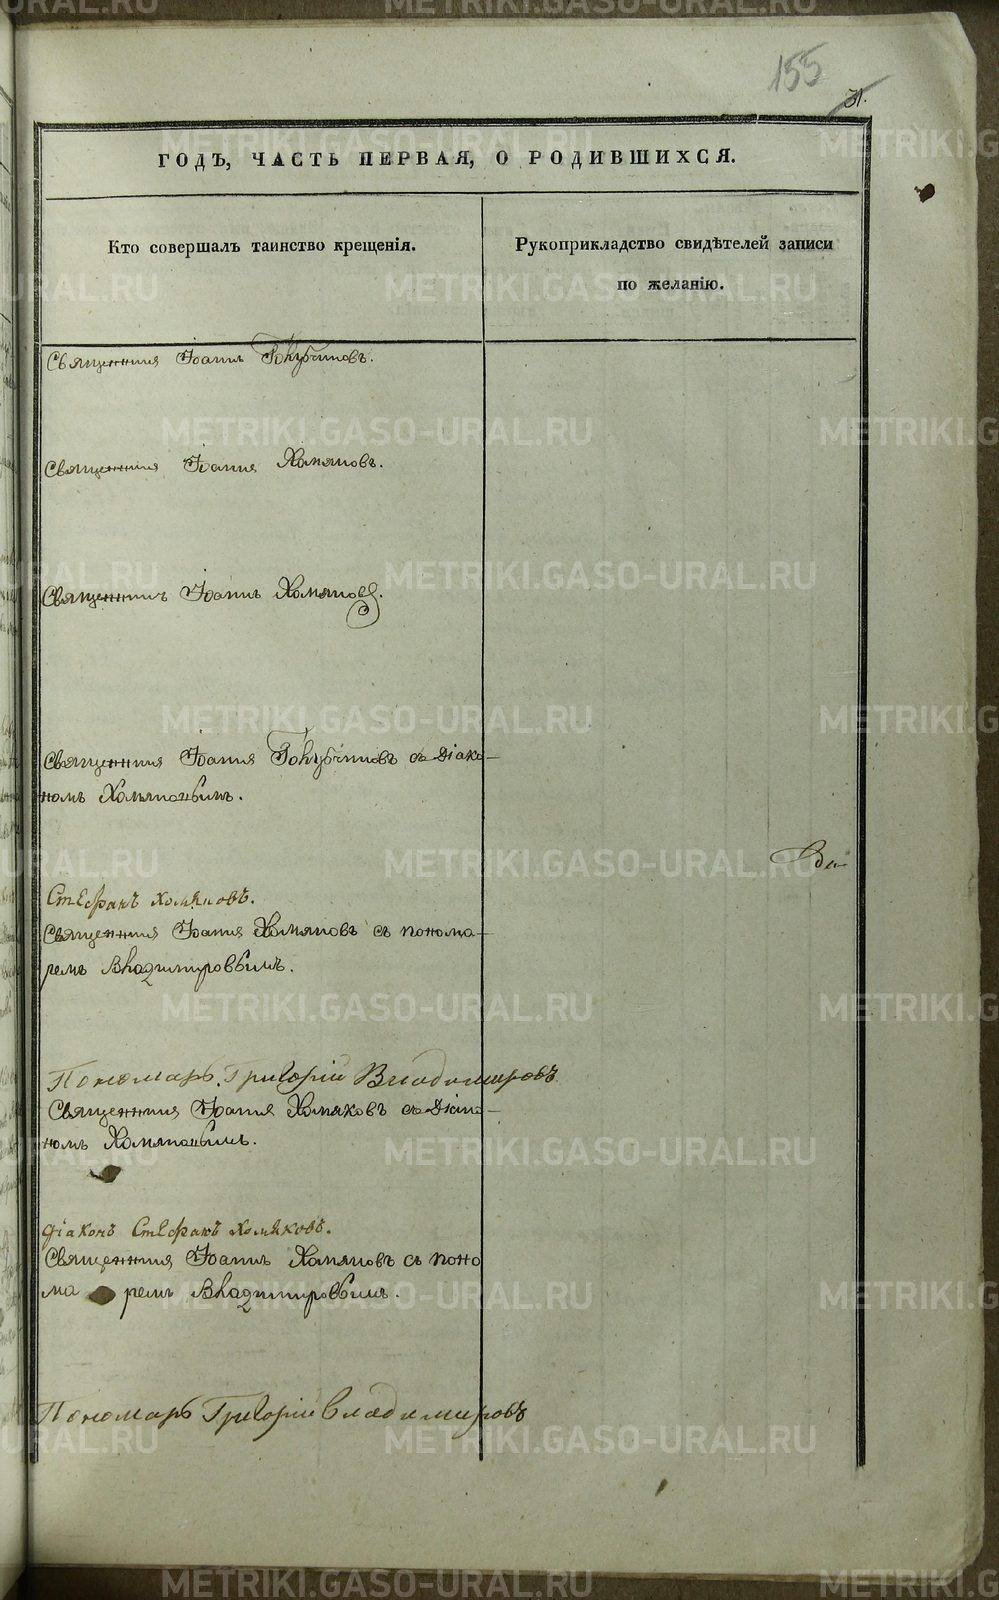 155
31.
ГОДЪ, ЧАСТЬ ПЕРВАЯ, О РОДИВШИХСЯ.
Кто совершалъ таинство крещенія.
Рукоприкладство свидѣтелей записи
по желанію.
Священникъ Іоаннъ Голубчиковъ.
Священникъ Іоаннъ Хомяковъ.
Священникъ Іоаннъ Хомяковъ.
Священникъ Іоаннъ Голубчиковъ съ Діако-
номъ Хомяковымъ.
Стефанъ Хомяковъ.
Священникъ Іоаннъ Хомяковъ съ понома-
ремъ Владимировымъ.
Пономарь Григорій Владимировъ
Священникъ Іоаннъ Хомяковъ съ Діако-
номъ Хомяковымъ.
Діаконъ Стефанъ Хомяковъ.
Священникъ Іоаннъ Хомяковъ съ поно
ма ремъ Владимировымъ.
Пономарь Григорій Владимировъ
METRIKI.GASO-URAL.RU